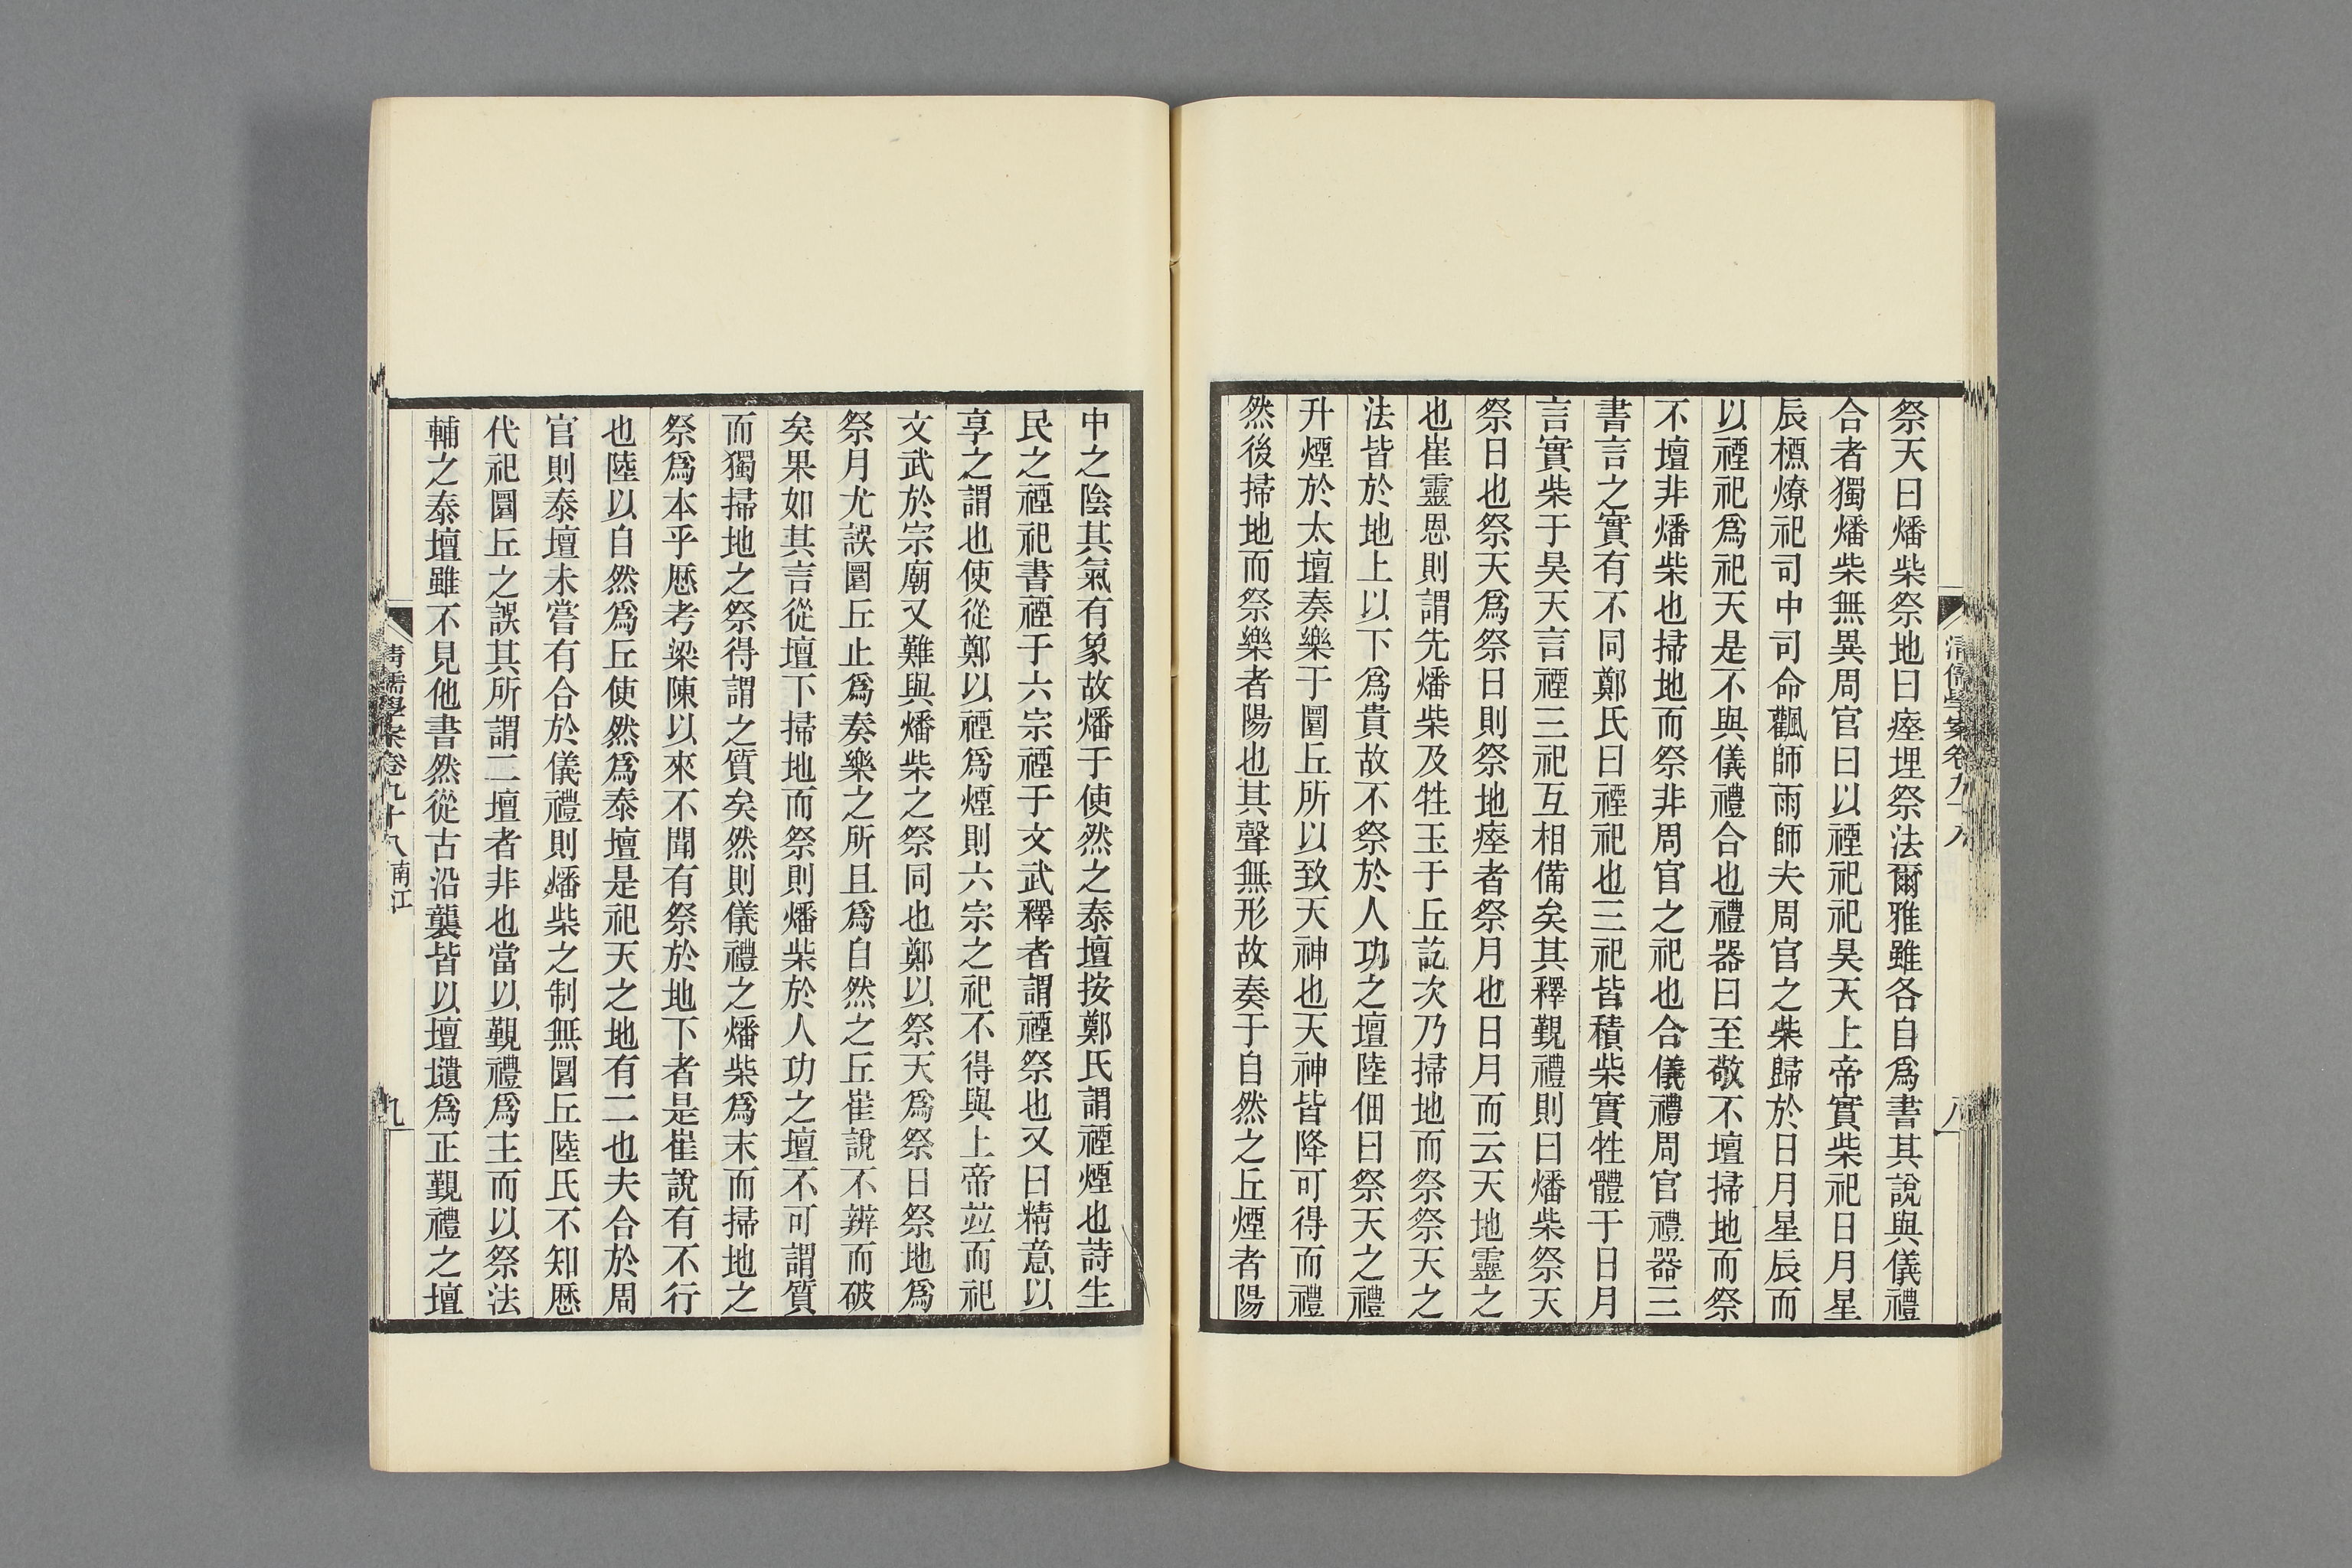 清儒學案卷九十八
八
祭天曰燔柴祭地曰瘞埋祭法爾雅雖各自爲書其說與儀禮
合者獨燔柴無異周官曰以禋祀祀昊天上帝實柴祀日月星
辰槱燎祀司中司命飌師雨師夫周官之柴歸於日月星辰而
以禋祀爲祀天是不與儀禮合也禮器曰至敬不壇掃地而祭
不壇非燔柴也掃地而祭非周官之祀也合儀禮周官禮器三
書言之實有不同鄭氏曰禋祀也三祀皆積柴實牲體于日月
言實柴于昊天言禋三祀互相備矣其釋覲禮則曰燔柴祭天
祭日也祭天爲祭日則祭地瘞者祭月也日月而云天地靈之
也崔靈恩則謂先燔柴及牲玉于丘訖次乃掃地而祭祭天之
法皆於地上以下爲貴故不祭於人功之壇陸佃曰祭天之禮
升煙於太壇奏樂于圜丘所以致天神也天神皆降可得而禮
然後掃地而祭樂者陽也其聲無形故奏于自然之丘煙者陽
中之陰其氣有象故燔于使然之泰壇按鄭氏謂禋煙也詩生
民之禋祀書禋于六宗禋于文武釋者謂禋祭也又曰精意以
享之謂也使從鄭以禋爲煙則六宗之祀不得與上帝竝而祀
文武於宗廟又難與燔柴之祭同也鄭以祭天爲祭日祭地爲
祭月尤誤圜丘止爲奏樂之所且爲自然之丘崔說不辨而破
矣果如其言從壇下掃地而祭則燔柴於人功之壇不可謂質
而獨掃地之祭得謂之質矣然則儀禮之燔柴爲末而掃地之
祭爲本乎歷考梁陳以來不聞有祭於地下者是崔說有不行
也陸以自然爲丘使然爲泰壇是祀天之地有二也夫合於周
官則泰壇未嘗有合於儀禮則燔柴之制無圜丘陸氏不知歷
代祀圜丘之誤其所謂二壇者非也當以覲禮爲主而以祭法
輔之泰壇雖不見他書然從古沿襲皆以壇壝爲正覲禮之壇
清儒學案卷九十八 南江
九